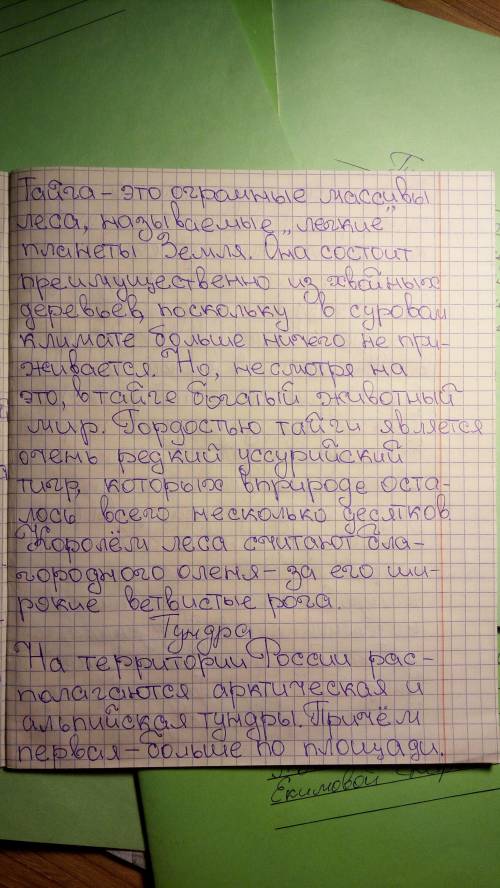 Тайга – это огромные массивы
леса, называемые „легкие"
планеты Земля. Она состоит
преимущественно из хвойных
деревьев, поскольку в суровом
климате больше ничего не при-
живается. Но, несмотря на
это, в тайге богатый животный
мир. Гордостью тайги является
очень редкий уссурийский
тигр, которых в природе оста-
лось всего несколько десятков.
Королём леса считают бла-
городного оленя – за его ши-
рокие ветвистые рога.
Тундра
На территории России рас-
полагаются арктическая и
альпийская тундры. Причём
первая – больше по площади.
Екимовой